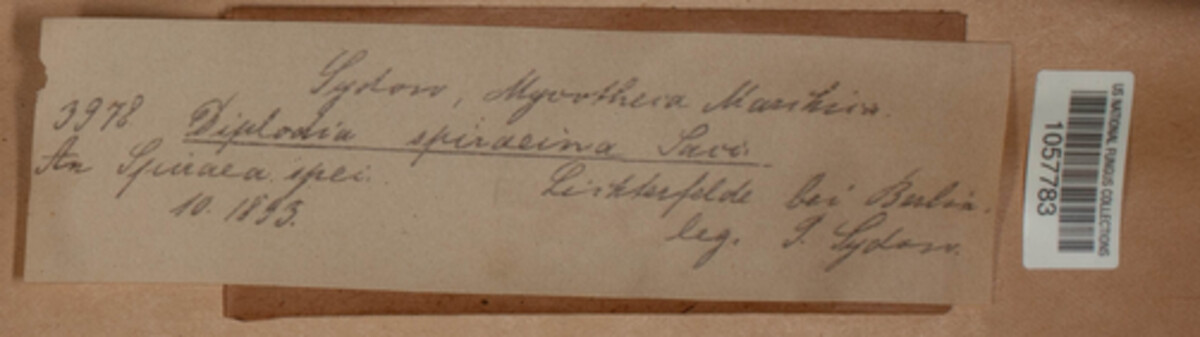 Sydow, Mycotheca Marchica.
3978 Diplodia spiraeina Sacc.
An Spiraea spec.
Lichterfelde bei Berlin.
10. 1893.
leg. P. Sydow.
US NATIONAL FUNGUS COLLECTIONS
1057783